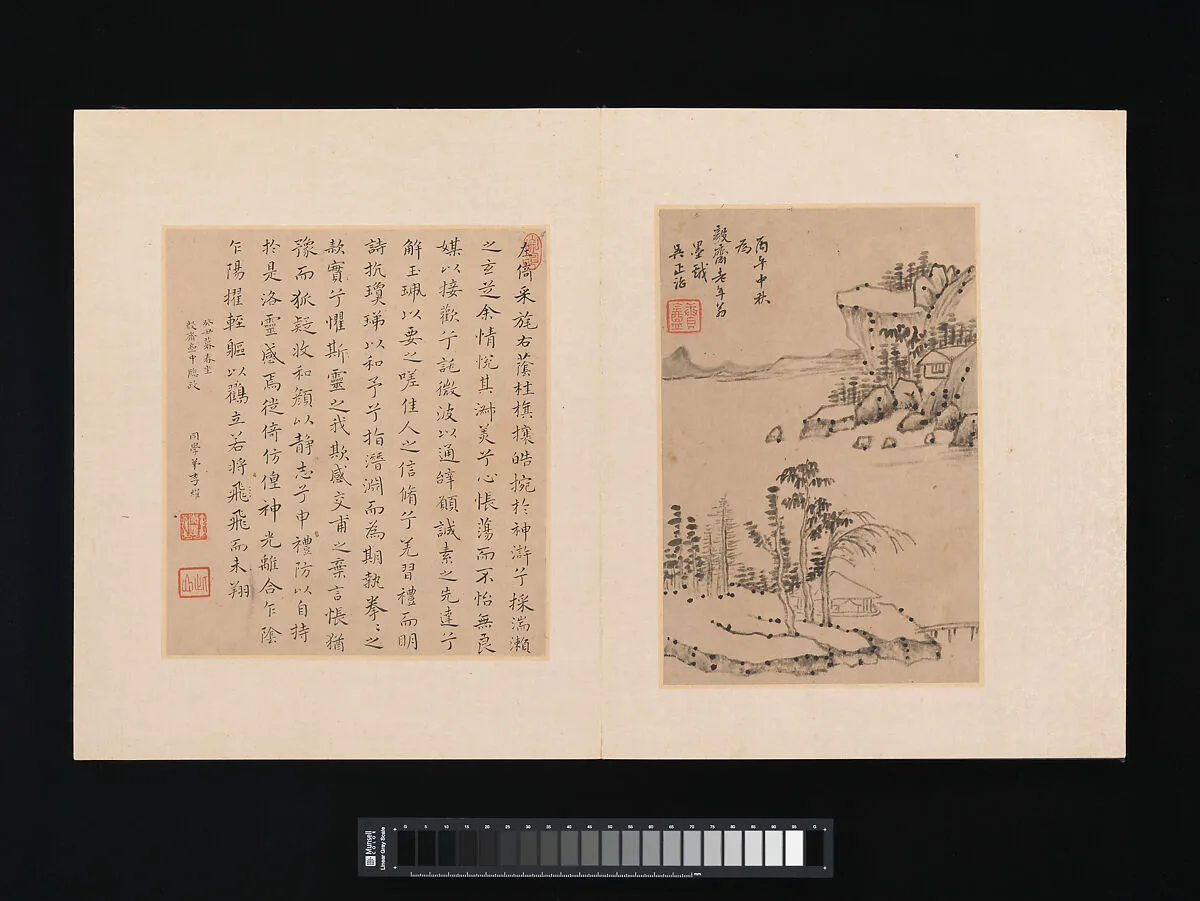 丙午中秋
為
毅齋老年翁
墨戲
吳正治
左倚采旄右蔭桂旗攘皓捥於神滸兮採湍瀨
之玄芝余情悅其淑美兮心悵蕩而不怡無良
媒以接歡兮託微波以通辭願誠素之先達兮
解玉珮以要之嗟佳人之信脩兮羌習禮而明
詩抗瓊珶以和予兮指潛淵而為期執拳〻之
款實兮懼斯靈之我欺感交甫之棄言悵猶
豫而狐疑收和顏以靜志兮申禮防以自持
於是洛靈感焉徙倚仿偟神光離合乍陰
乍陽擢輕軀以鶴立若將飛飛而未翔
癸丑暮春坐
毅齋齋中臨政
同學弟李
Munsell COLOR
Linear Gray Scale
0 5 10 15 20 25 30 35 40 45 50 55 60 65 70 75 80 85 90 95 G
mm